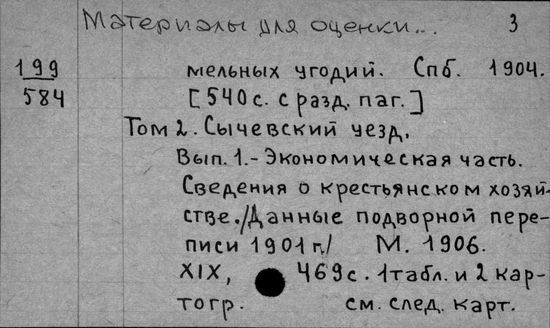 Материалы для оценки... 3
199
584
мельных угодий. Спб. 1904.
[540 с. с разд. паг.]
Том 2. Сычевский уезд.
Вып. 1.- Экономическая часть.
Сведения о крестьянском хозяй-
стве./Данные подворной пере-
писи 1901 г./ М. 1906.
XIX, 469 с. 1 табл. и 2 кар-
тогр. см. след. карт.